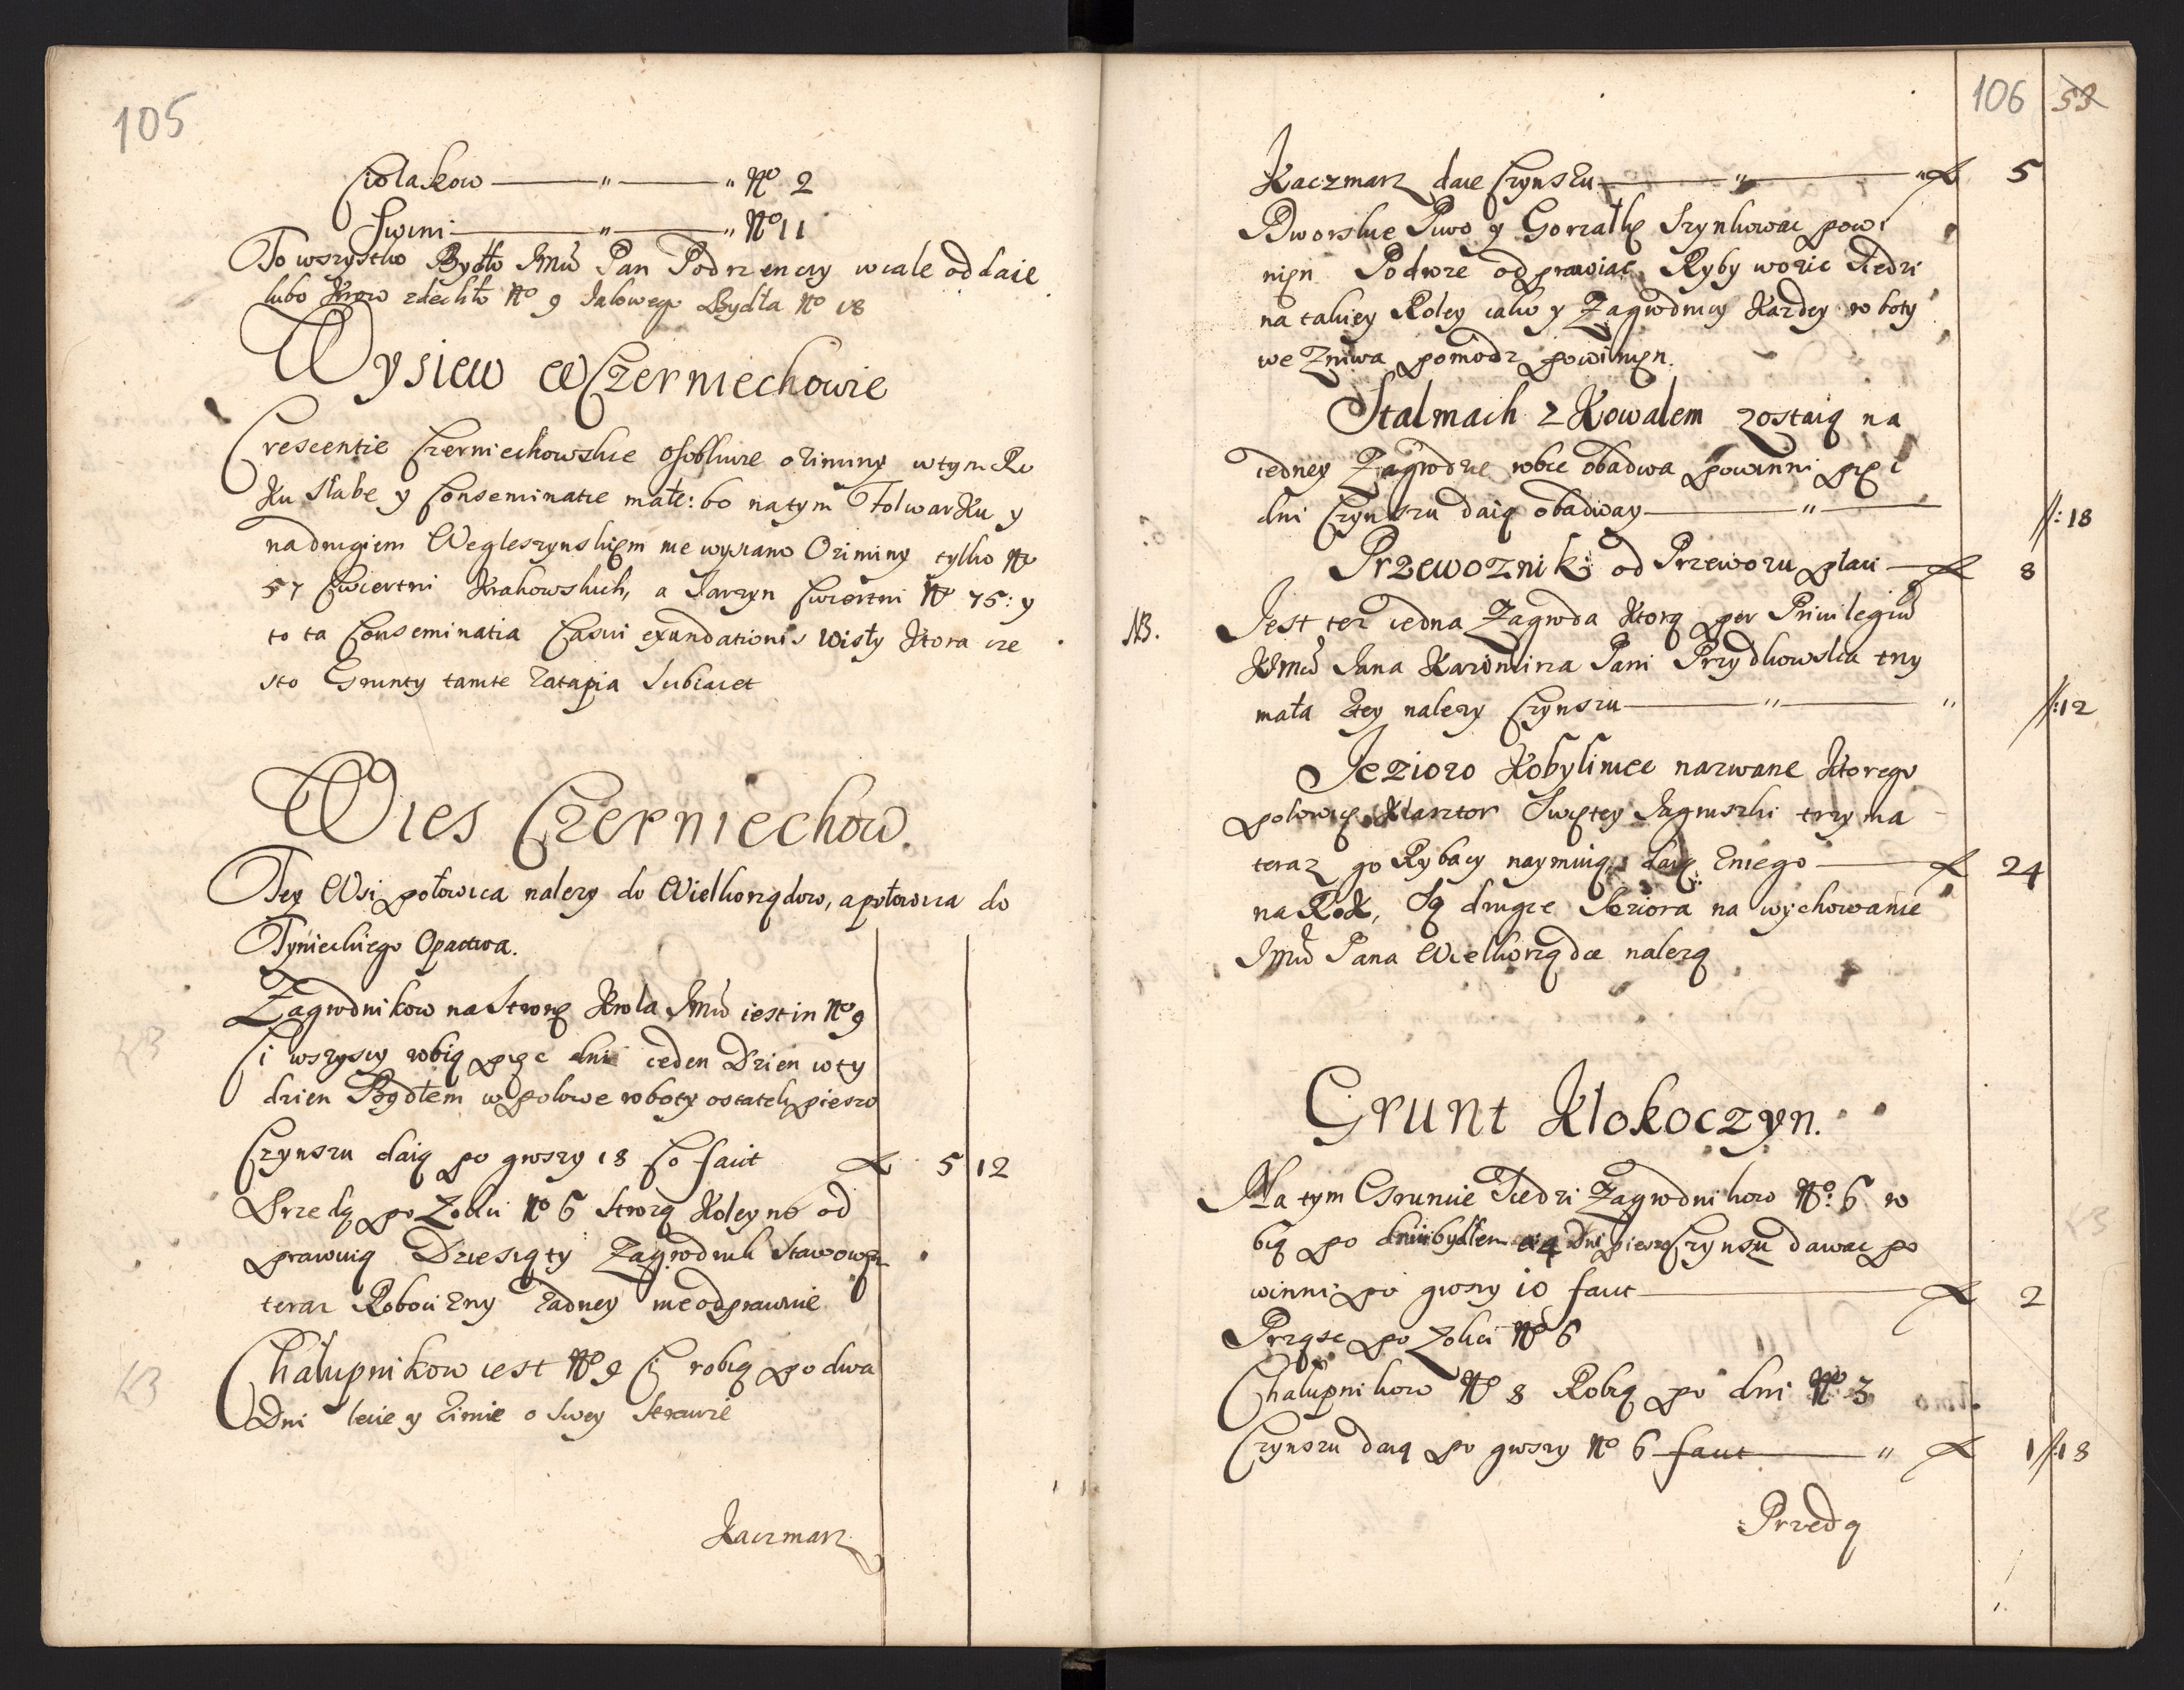 105
Ciolakow — " — " No 2
Swini — " — " No 11
To wszystko Bydło Jmć Pan Podrzenczy wcale oddaie
lubo Krow zdechło No 9 Jałowego Bydła No 18
Wysiew w Czerniechowie
Crescentie Czerniechowskie osobliwie oziminy wtym Ro
ku słabe y Conseminatie małe: bo natym Folwarku y
nadrugiem Wegleszynskięm nie wysiano Oziminy tylko No
57 Cwiertni Krakowskich, a Jarzyn Cwiertni No 75: y
to ta Conseminatia Casui exundationis Wisły Ktora cze
sto Grunty tamte zatapia Subiacet
Wies Czerniechow.
Tey Wsi połowica nalezy do Wielkorządow, a połowica do
Tynieckiego Opactwa.
Zagrodnikow na Stronę Krola Jmci iest in No 9
Ci wszyscy robią pięc dni ieden Dzien wty
dzien Bydłem w połowe roboty ostatek pieszo
Czynszu daią po groszy 18 Co facit ƒ 5 12
Przedą po Zokci No 6 Strozą Koleyno od
prawuią Dziesiąty Zagrodnik Stawowy
teraz Robocizny zadney nieodprawuie
Chałupnikow iest No 9 Ci robią po dwa
Dni lecie y zimie o swey Strawie
Kaczmarz
106 53
Kaczmarz daie Czynszu — " — " ƒ 5
Dworskie Piwo y Gorzałkę Szynkowac powi
nięn Podwoze odprawiac, Ryby wozic Siedzi
na takiey Roley iako y Zagrodnicy Kazdey roboty
we Zniwa pomodz powinięn.
Stalmach z Kowalem zostaią na
iedney Zagrodzie robic obadwa powinni pięc
dni Czynszu daią obadway — " — //:18
Przewoznik od Przewozu płaci — ƒ 8
NB. Jest tez iedna Zagroda Ktorą per Privilegiũ
KJmci Jana Kazimirza Pani Przydkowska trzy
mała Ztey nalezy Czynszu — " — " //:12
Jezioro Kobyliniec nazwane Ktorego
połowicę Klasztor Swiętey Jagnuszki trzyma
teraz go Rybacy naymuią, daią zniego — ƒ 24
na Rok, Są drugie Jeziora na wychowanie
Jmci Pana Wielkorządce nalezą
Grunt Kłokoczyn.
Na tym Gruncie Siedzi Zagrodnikow No: 6 ro
bią po dniu bydłem a 4 Dni pieszo Czynszu dawac po
winni po groszy 10 facit — ƒ 2
Prząsc po Zokci No 6
Chałupnikow No 8 Robią po dni No 3
Czynszu daią po groszy No 6 facit — " ƒ 1 //:18
Przedą